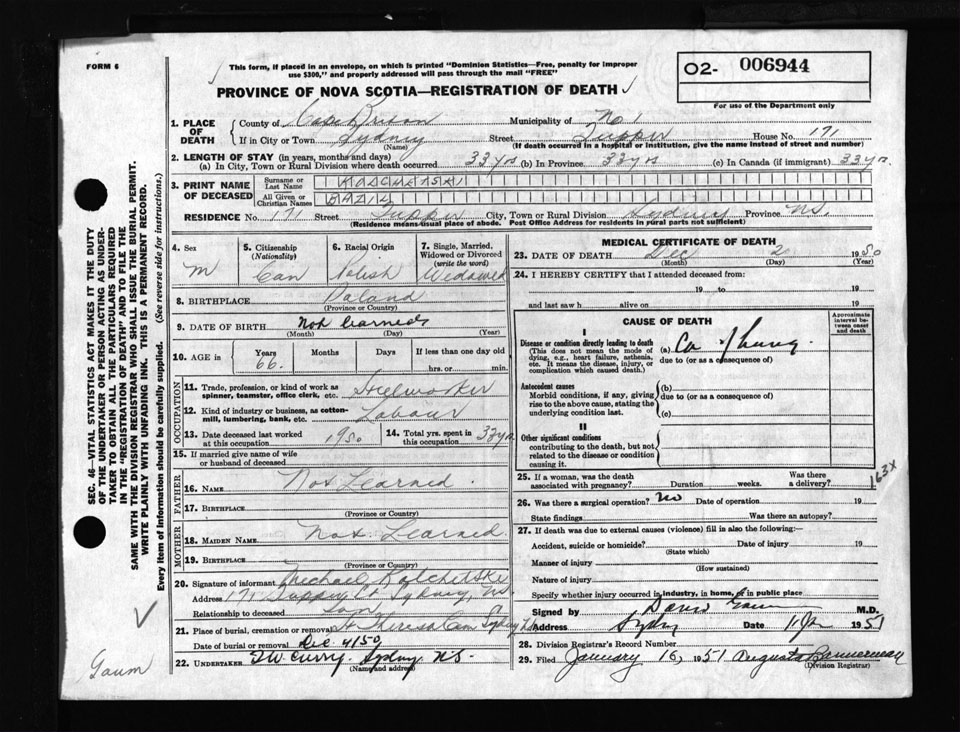 FORM 6
This form, if placed in an envelope, on which is printed "Dominion Statistics—Free, penalty for improper
use $300," and properly addressed will pass through the mail "FREE"
O2- 006944
PROVINCE OF NOVA SCOTIA—REGISTRATION OF DEATH
For use of the Department only
1. PLACE OF DEATH
County of Cape Breton Municipality of No 1
If in City or Town Sydney Street Tupper House No. 171
(Name) (If death occurred in a hospital or institution, give the name instead of street and number)
2. LENGTH OF STAY (in years, months and days)
(a) In City, Town or Rural Division where death occurred 33 yrs (b) In Province 33 yrs (c) In Canada (if immigrant) 33 yrs.
3. PRINT NAME OF DECEASED
Surname or Last Name
All Given or Christian Names BAZIL
RESIDENCE No. 171 Street Tupper City, Town or Rural Division Sydney Province N.S.
(Residence means usual place of abode. Post Office Address for residents in rural parts not sufficient)
4. Sex M
5. Citizenship (Nationality) Can
6. Racial Origin Polish
7. Single, Married, Widowed or Divorced (write the word) Widowed
8. BIRTHPLACE Poland
(Province or Country)
9. DATE OF BIRTH Not learned
(Month) (Day) (Year)
10. AGE in Years 66. Months Days If less than one day old
hrs. or min.
OCCUPATION
11. Trade, profession, or kind of work as spinner, teamster, office clerk, etc. Steelworker
12. Kind of industry or business, as cotton-mill, lumbering, bank, etc. Labour
13. Date deceased last worked at this occupation 1950
14. Total yrs. spent in this occupation 33 yrs.
15. If married give name of wife or husband of deceased
FATHER
16. NAME Not Learned
17. BIRTHPLACE
(Province or Country)
MOTHER
18. MAIDEN NAME Not Learned
19. BIRTHPLACE
(Province or Country)
20. Signature of informant Michael
Address 171 Tupper St Sydney, N.S.
Relationship to deceased Son
21. Place of burial, cremation or removal St Theresa Cem Sydney
Date of burial or removal Dec 4 1950
22. UNDERTAKER Curry, Sydney N.S.
(Name and address)
MEDICAL CERTIFICATE OF DEATH
23. DATE OF DEATH Dec 2 1950
(Month) (Day) (Year)
24. I HEREBY CERTIFY that I attended deceased from:
19 to 19
and last saw h alive on 19
CAUSE OF DEATH
Approximate interval between onset and death
I
Disease or condition directly leading to death
(This does not mean the mode of dying, e.g., heart failure, asthenia, etc. It means the disease, injury, or complication which caused death.)
(a) Ca of Lung.
due to (or as a consequence of)
Antecedent causes
Morbid conditions, if any, giving rise to the above cause, stating the underlying condition last.
(b)
due to (or as a consequence of)
(c)
II
Other significant conditions
contributing to the death, but not related to the disease or condition causing it.
25. If a woman, was the death associated with pregnancy? Duration weeks. Was there a delivery?
163x
26. Was there a surgical operation? no Date of operation 19
State findings Was there an autopsy?
27. If death was due to external causes (violence) fill in also the following:—
Accident, suicide or homicide? Date of injury 19
(State which)
Manner of injury
(How sustained)
Nature of injury
Specify whether injury occurred in industry, in home, or in public place
Signed by M.D.
Address Sydney Date 1951
28. Division Registrar's Record Number
29. Filed January 16, 1951 Augusta Bannerman
(Division Registrar)
SEC. 46—VITAL STATISTICS ACT MAKES IT THE DUTY
OF THE UNDERTAKER OR PERSON ACTING AS UNDER-
TAKER TO OBTAIN ALL THE PARTICULARS REQUIRED
IN THE "REGISTRATION OF DEATH" AND TO FILE THE
SAME WITH THE DIVISION REGISTRAR WHO SHALL ISSUE THE BURIAL PERMIT.
WRITE PLAINLY WITH UNFADING INK. THIS IS A PERMANENT RECORD.
Every item of Information should be carefully supplied. (See reverse side for instructions.)